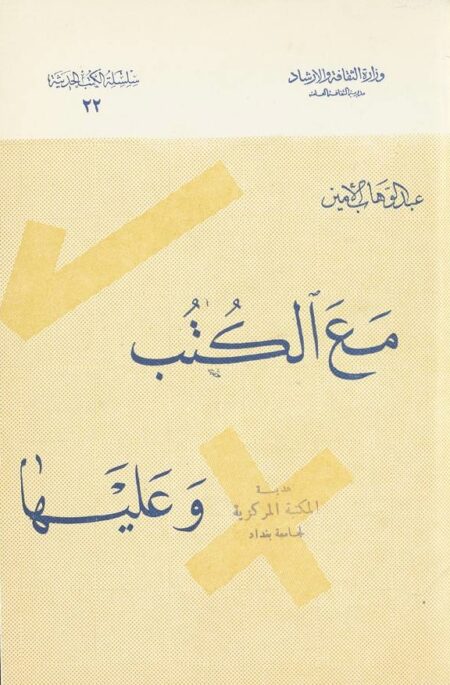 وزارة الثقافة والارشاد
مديرية الثقافة العامة
سلسلة الكتب الحديثة
٢٢
عبد الوهاب الأمين
مَعَ ٱلكُتُب
وَعَليَها
هدية
المكتبة المركزية
لجامعة بغداد